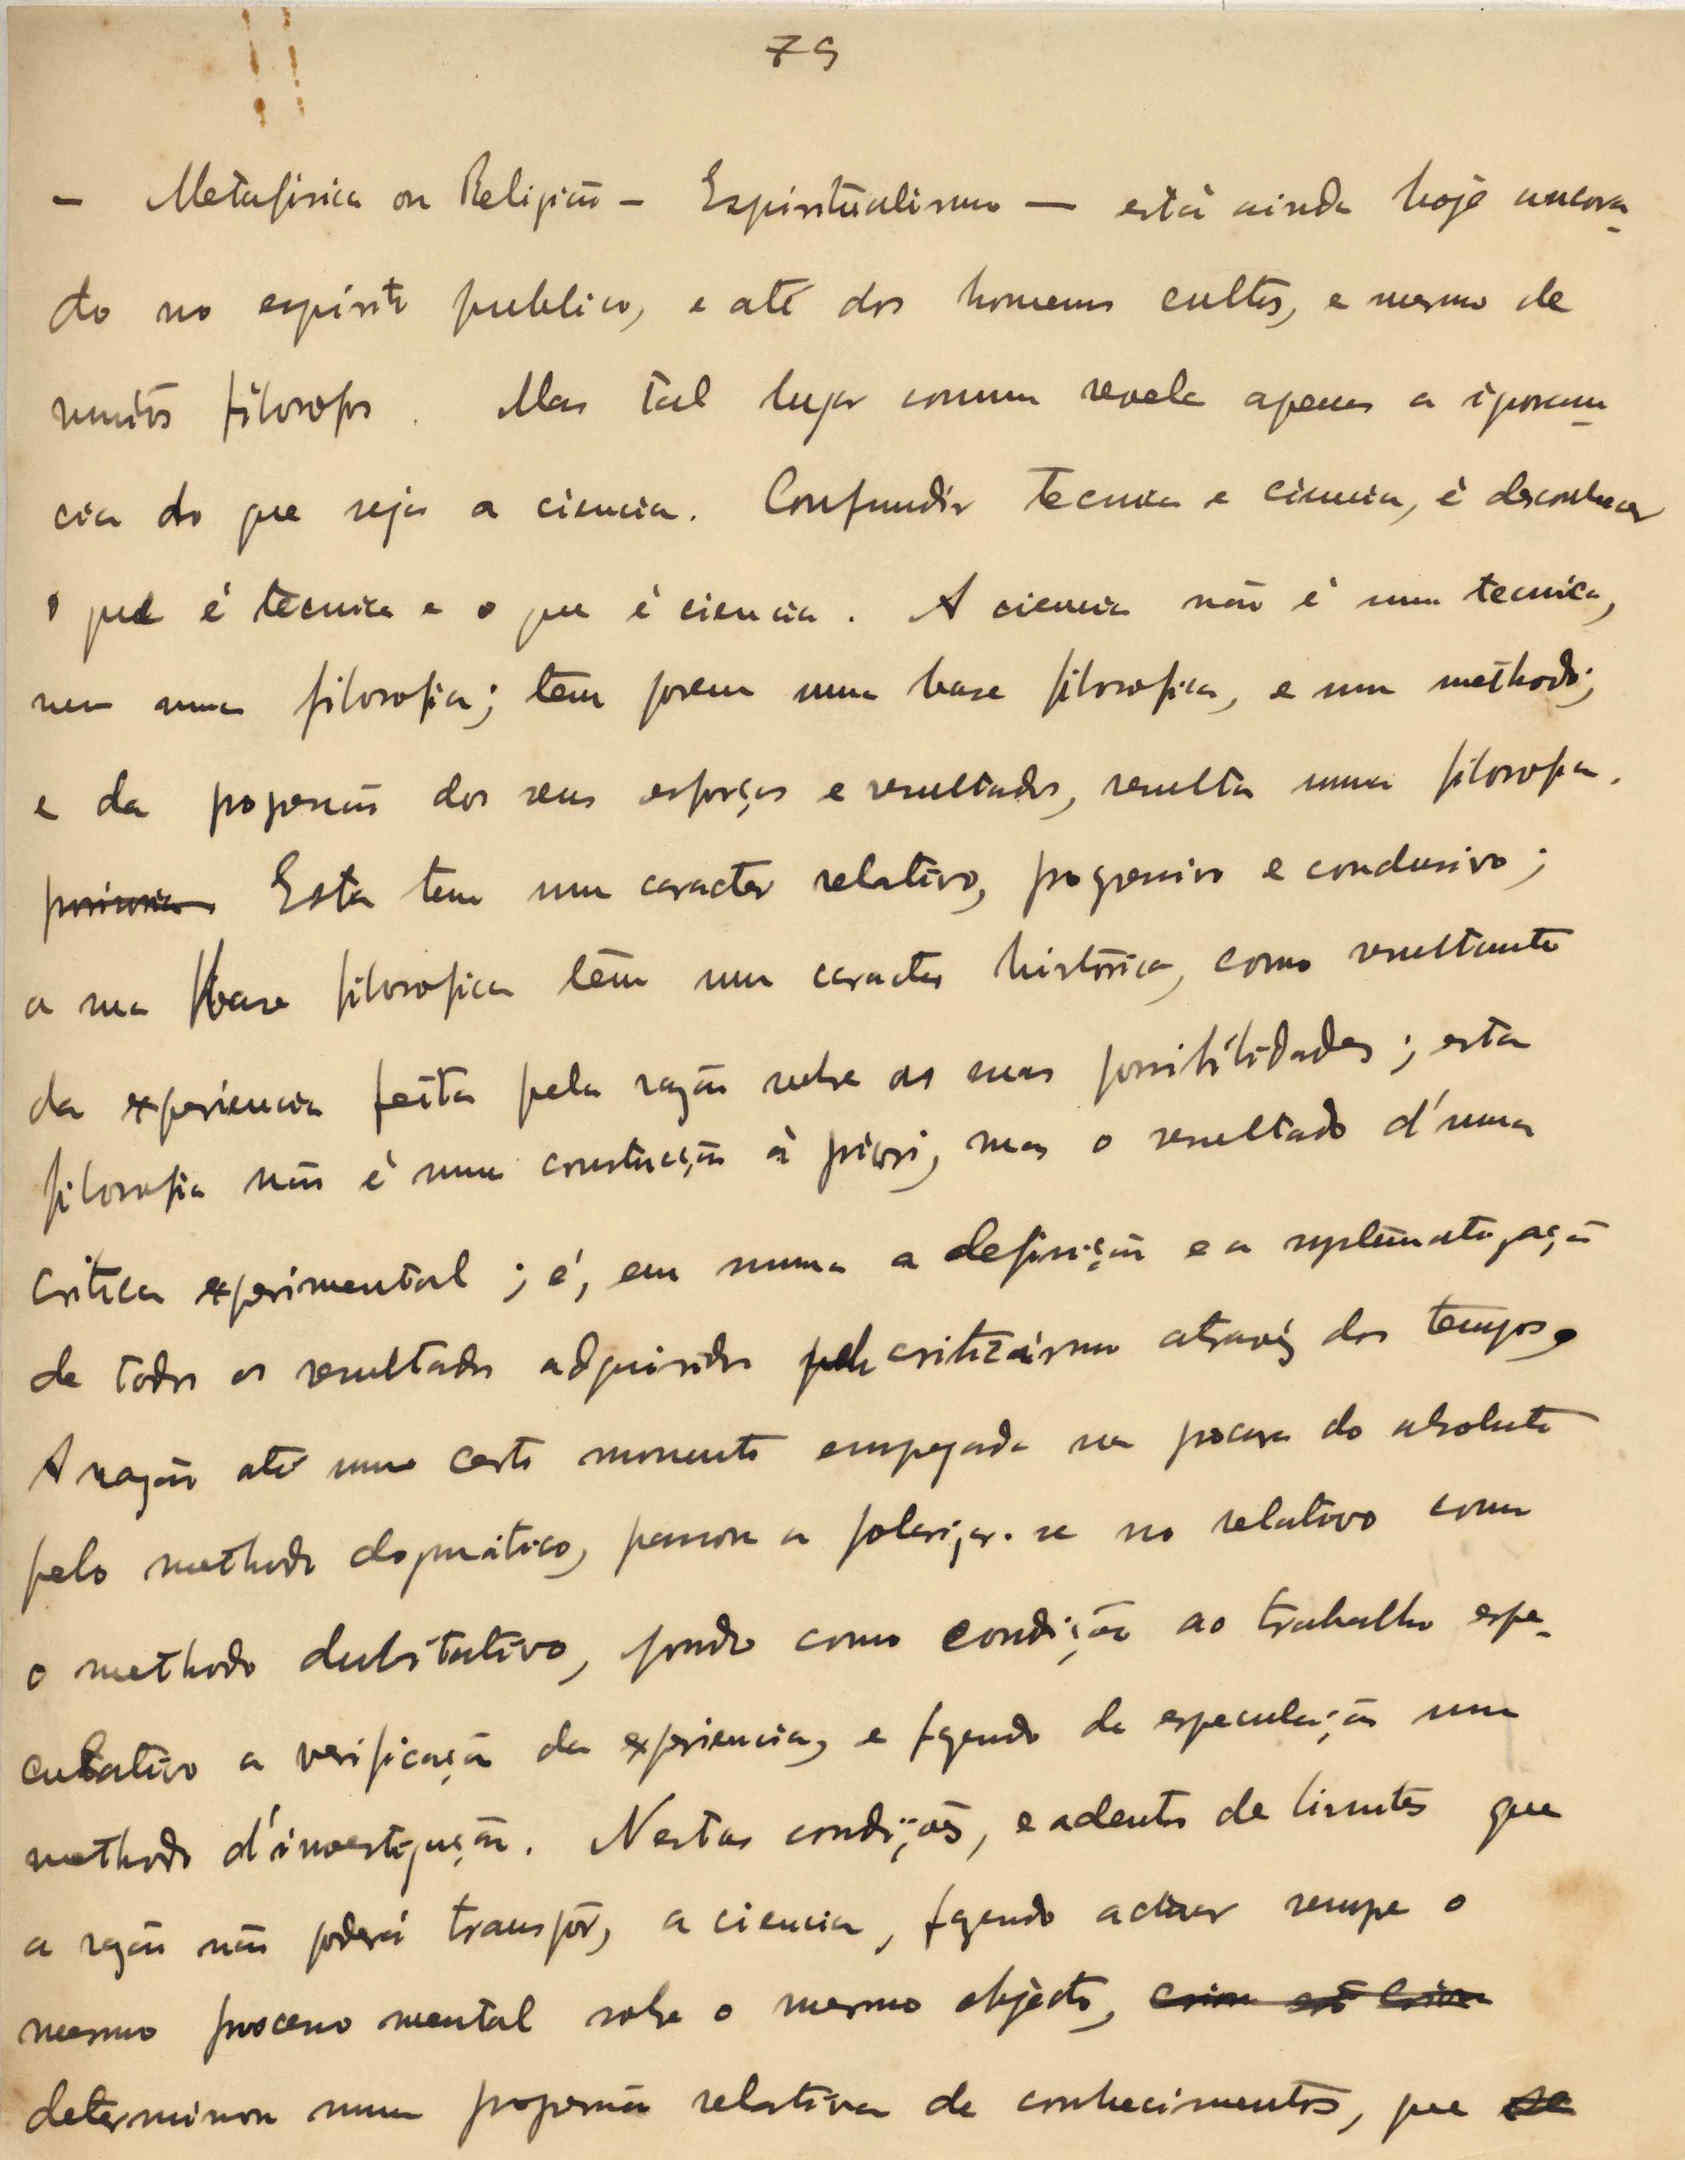 79
- Metafisica ou Religião - Espiritualismo - está ainda hoje ancora-
do no espirito publico, e até dos homens cultos, e mesmo de
muitos filosofos. Mas tal lugar comum revela apenas a ignoran-
cia do que seja a ciencia. Confundir tecnica e ciencia, é desconhecer
o que é tècnica e o que é ciencia. A ciencia não é uma tecnica,
nem uma filosofia; tem porem uma base filosofica, e um méthodo;
e da progressão dos seus esforços e resultados, resulta uma filosofia.
Esta tem um caracter relativo, progressivo e conclusivo;
a sua base filosofica tem um caracter històrica, como resultante
da experiencia feita pela razão sobre as suas possibilidades; esta
filosofia não é uma construcção à priori, mas o resultado d'uma
critica experimental; é, em suma a definição e a systematização
de todos os resultados adquiridos pelo criticismo através dos tempos.
A razão até um certo momento empregada na procura do absoluto
pelo methodo dogmático, passou a polarizar-se no relativo com
o methodo dubitativo, pondo como condição ao trabalho espe-
culativo a verificação da experiencia, e fazendo da especulação um
methodo d'investigação. Nestas condições, e adentro de limites que
a razão não poderá transpôr, a ciencia, fazendo actuar sempre o
mesmo processo mental sobre o mesmo objècto,
determinou uma progressão relativa de conhecimentos, que